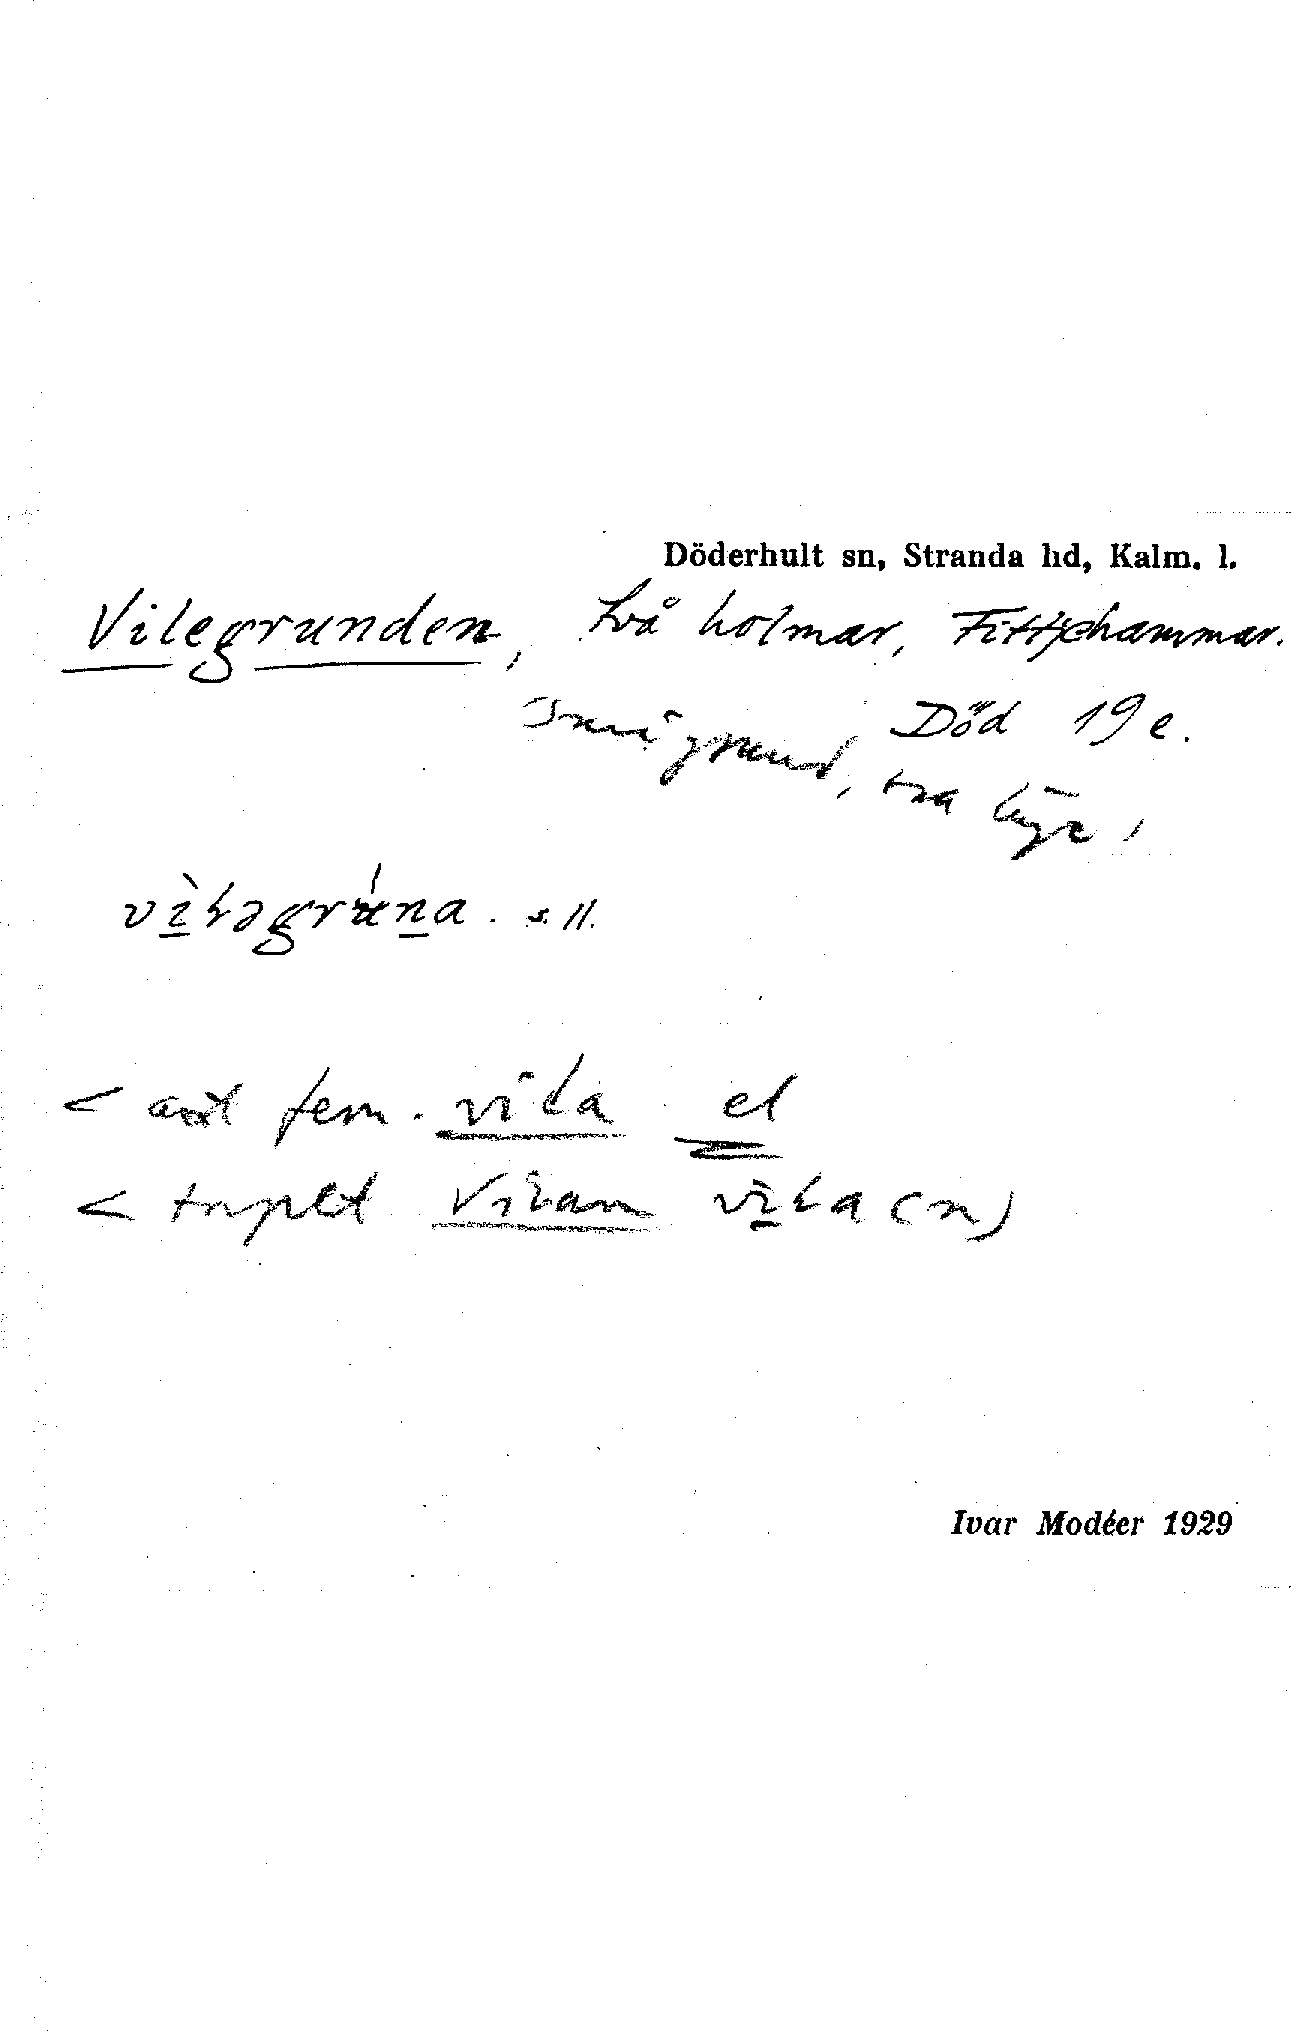 Döderhult sn, Stranda hd, Kalm. l.
Vilegrunden, två holmar, Fittjehammar.
Död 19 e.
Smågrund, två
vìləgrúna. s. ll.
< fem. vila el
< Vilan vìla (n)
Ivar Modéer 1929